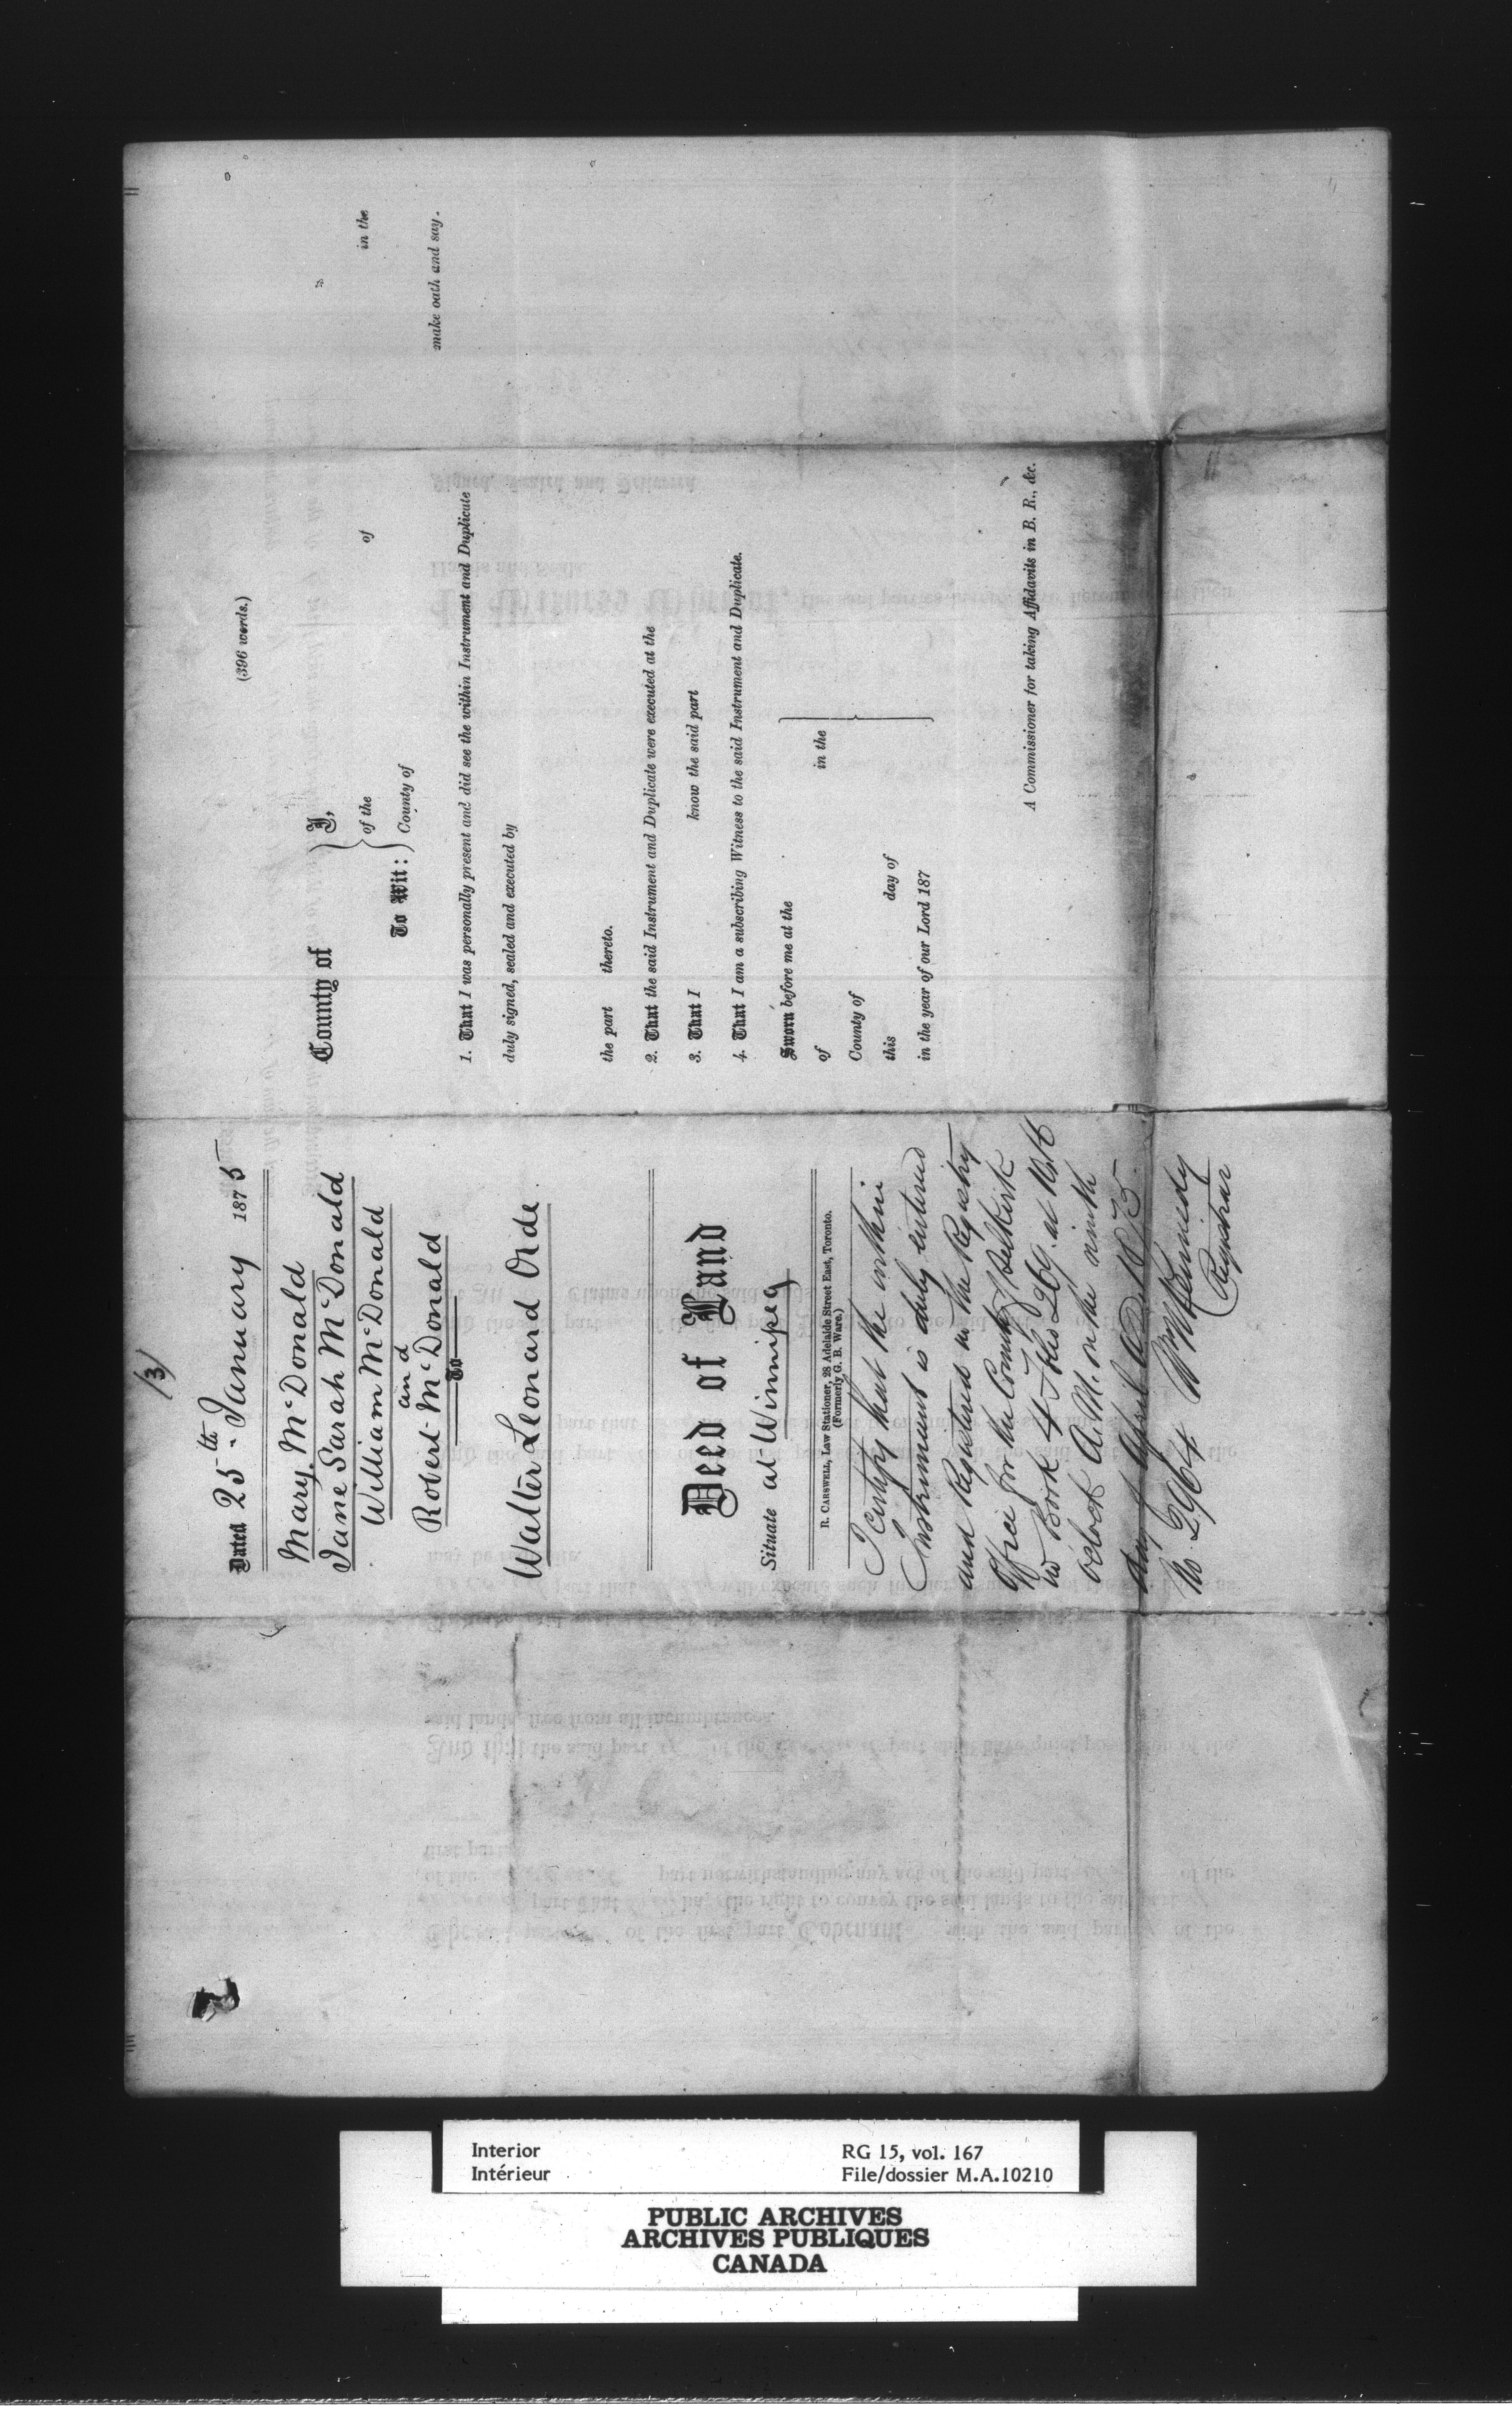 (3)
Dated 25th January 1875
Mary McDonald
Jane Sarah McDonald
William McDonald
and
Robert McDonald
To
Walter Leonard Orde
Deed of Land
Situate at Winnipeg
R. Carswell, Law Stationer, 28 Adelaide Street East, Toronto.
(Formerly G. B. Ware.)
I certify that the within
Instrument is duly entered
and Registered in the Registry
Office for the County of Selkirk
in Book 4 Folio 269. at 10
oclock A.M. on the ninth
day of April A.D. 1875.
No. 2964 Wm Kennedy
Registrar
(396 words.)
County of } I,
To Wit: } of the of in the
County of make oath and say.
1. That I was personally present and did see the within Instrument and Duplicate
duly signed, sealed and executed by
the part thereto.
2. That the said Instrument and Duplicate were executed at the
3. That I know the said part
4. That I am a subscribing Witness to the said Instrument and Duplicate.
Sworn before me at the
of in the
County of
this day of
in the year of our Lord 187
A Commissioner for taking Affidavits in B. R., &c.
Interior RG 15, vol. 167
Intérieur File/dossier M.A.10210
PUBLIC ARCHIVES
ARCHIVES PUBLIQUES
CANADA